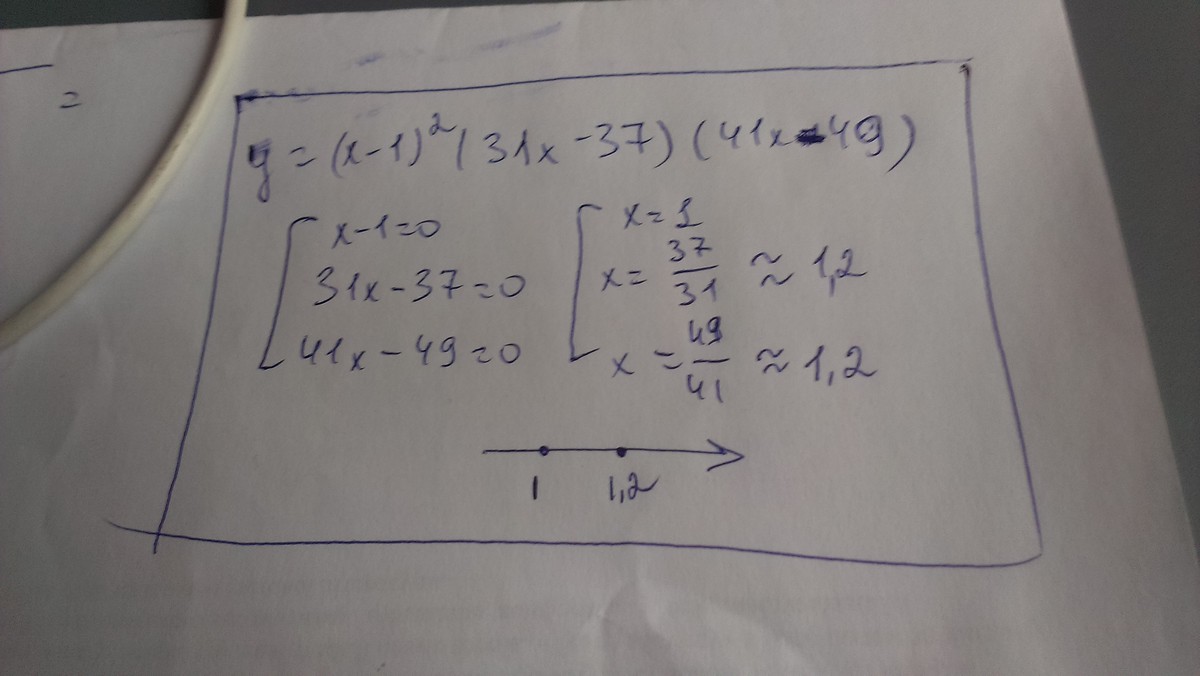 =
y = (x-1)² (31x-37) (41x-49)
x-1=0
31x-37=0
41x-49=0
x=1
x= 37/31 ≈ 1,2
x = 49/41 ≈ 1,2
1 1,2